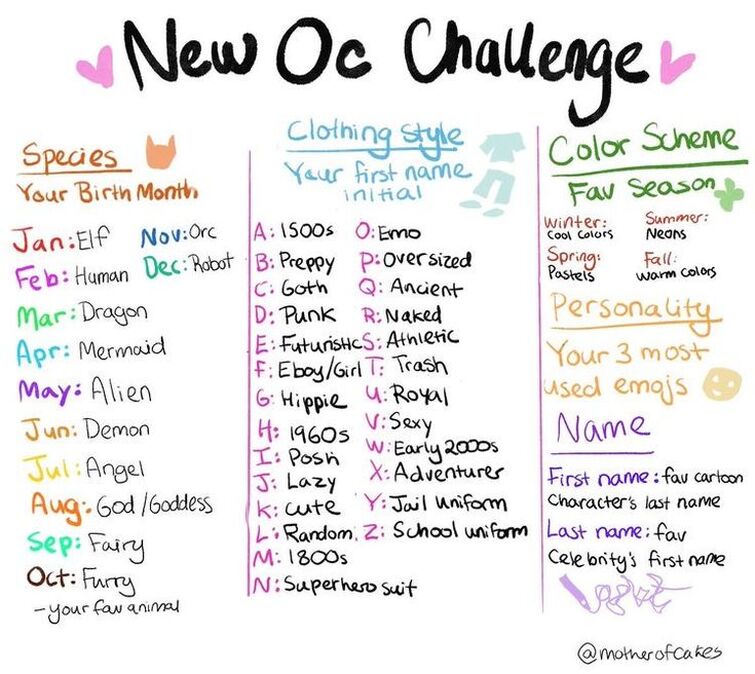 New Oc Challenge
Species
Your Birth Month
Jan: Elf
Feb: Human
Mar: Dragon
Apr: Mermaid
May: Alien
Jun: Demon
Jul: Angel
Aug: God/Goddess
Sep: Fairy
Oct: Furry
-your fav animal
Nov: Orc
Dec: Robot
Clothing Style
Your first name
initial
A: 1500s
B: Preppy
C: Goth
D: Punk
E: Futuristic
F: Eboy/Girl
G: Hippie
H: 1960s
I: Posh
J: Lazy
K: cute
L: Random
M: 1800s
N: Superhero suit
O: Emo
P: Oversized
Q: Ancient
R: Naked
S: Athletic
T: Trash
U: Royal
V: Sexy
W: Early 2000s
X: Adventurer
Y: Jail Uniform
Z: School uniform
Color Scheme
Fav Season
Winter:
Cool Colors
Summer:
Neons
Spring:
Pastels
Fall:
Warm Colors
Personality
Your 3 most
used emojs
Name
First name: fav cartoon
Character's last name
Last name: fav
Celebrity's first name
@motherofcakes